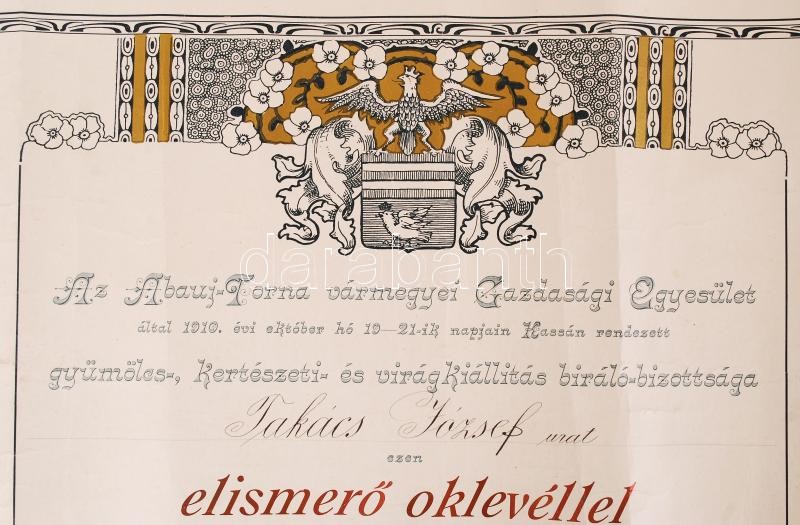 Az Abauj-Torna vármegyei Gazdasági Egyesület
által 1910. évi október hó 19—21-ik napjain Kassán rendezett
gyümölcs-, kertészeti- és virágkiállitás biráló-bizottsága
Takács József urat
ezen
elismerő oklevéllel
darabanth